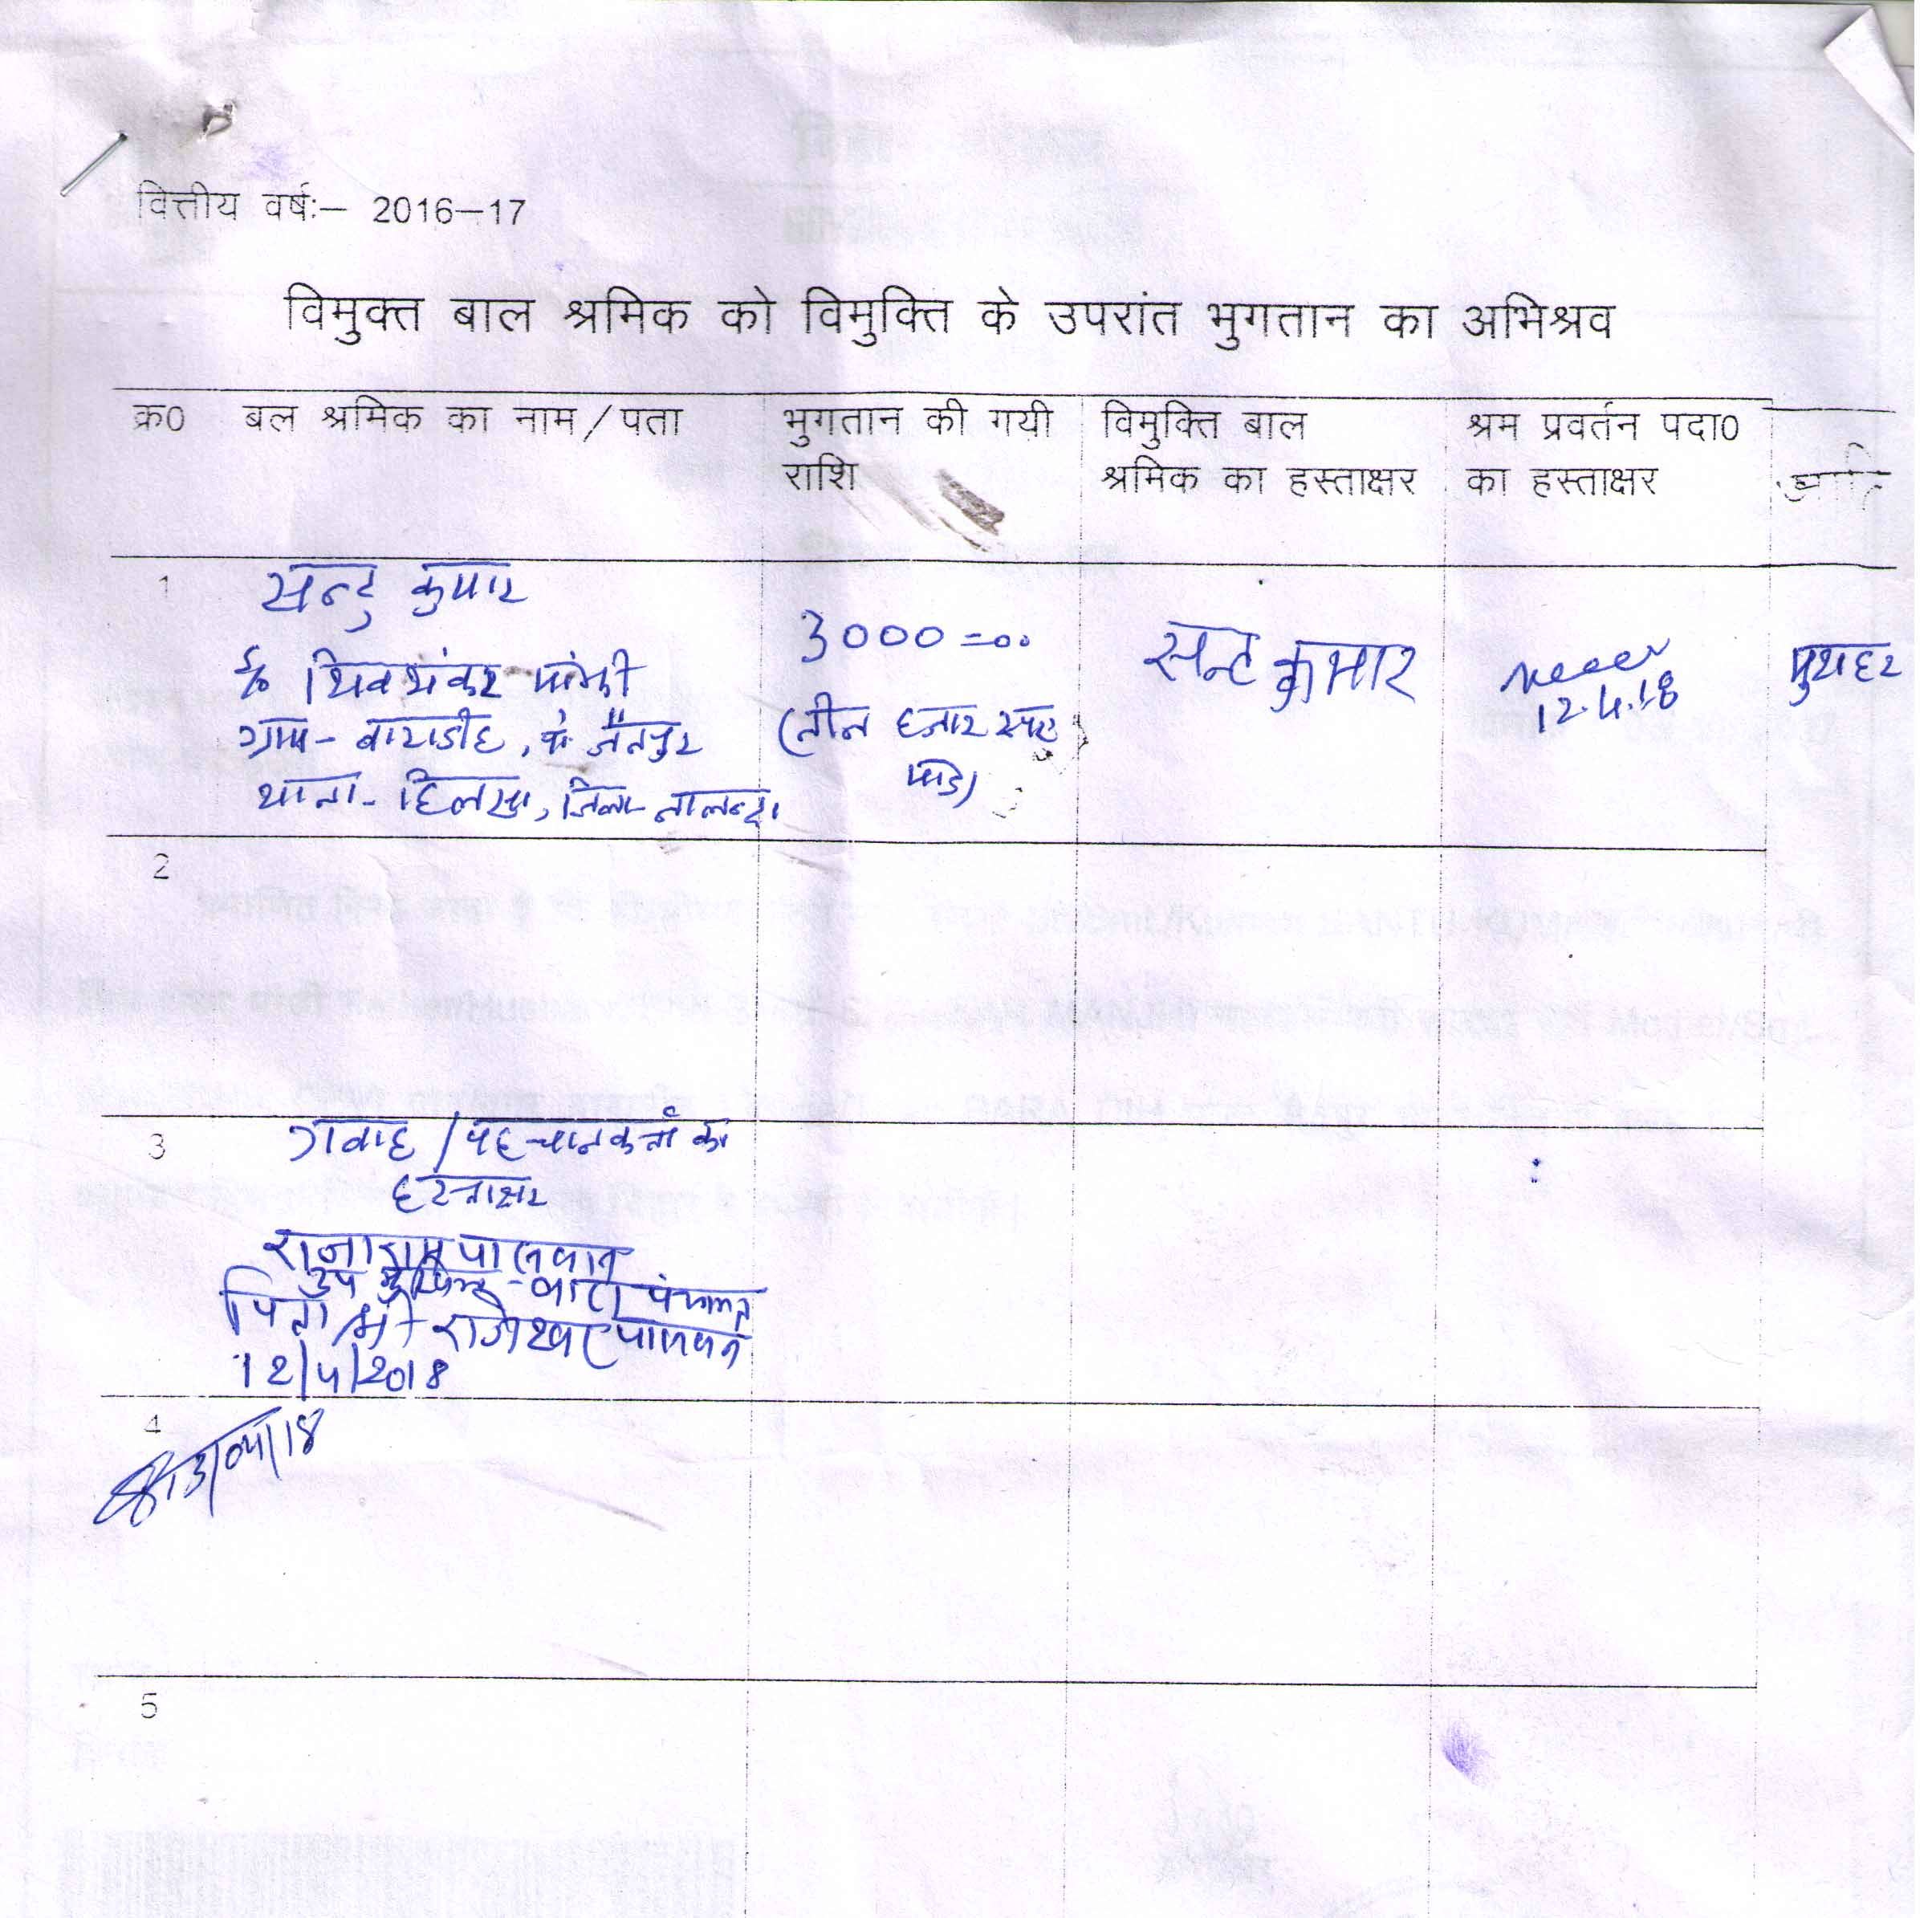 वित्तीय वर्षः– 2016–17
विमुक्त बाल श्रमिक को विमुक्ति के उपरांत भुगतान का अभिश्रव
क्र0 बल श्रमिक का नाम / पता भुगतान की गयी राशि विमुक्ति बाल श्रमिक का हस्ताक्षर श्रम प्रवर्तन पदा0 का हस्ताक्षर जाति
1 सन्टु कुमार
S/o शिवशंकर मांझी
ग्राम - बाराडीह, जैतपुर
थाना - हिलसा, जिला - नालन्दा
3000 =00
(तीन हजार रूपए मात्र)
सन्टु कुमार
12.4.18
मुशहर
2
3 गवाह / पहचानकर्ता का
हस्ताक्षर
राजाराम पासवान
उप मुखिया - पंचायत
पिता श्री राजेश्वर पासवान
12/4/2018
4
13/04/18
5